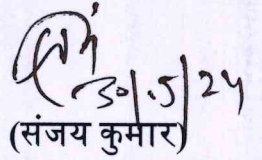 30.5/24
(संजय कुमार)